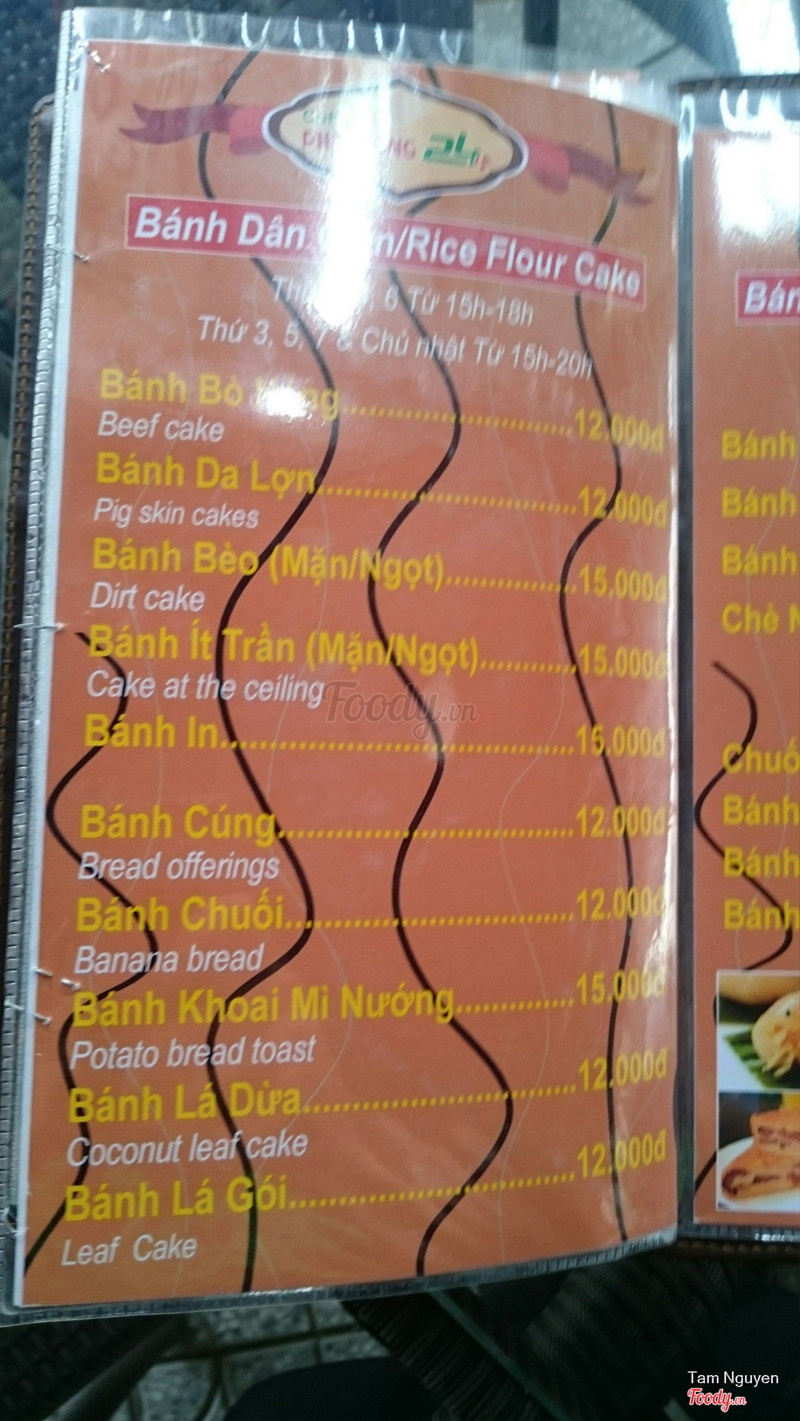 24
Bánh Dân /Rice Flour Cake
6 Từ 15h-18h
Thứ 3, 5, 7 & Chủ nhật Từ 15h-20h
Bánh Bò ..........12.000đ
Beef cake
Bánh Da Lợn..........12.000đ
Pig skin cakes
Bánh Bèo (Mặn/Ngọt)..........15.000đ
Dirt cake
Bánh Ít Trần (Mặn/Ngọt)..........15.000đ
Cake at the ceiling
Bánh In..........15.000đ
Bánh Cúng..........12.000đ
Bread offerings
Bánh Chuối..........12.000đ
Banana bread
Bánh Khoai Mì Nướng..........15.000đ
Potato bread toast
Bánh Lá Dừa..........12.000đ
Coconut leaf cake
Bánh Lá Gói..........12.000đ
Leaf Cake
Bánh
Bánh
Bánh
Chè
Bánh
Bánh
Bánh
Foody.vn
Tam Nguyen
Foody.vn